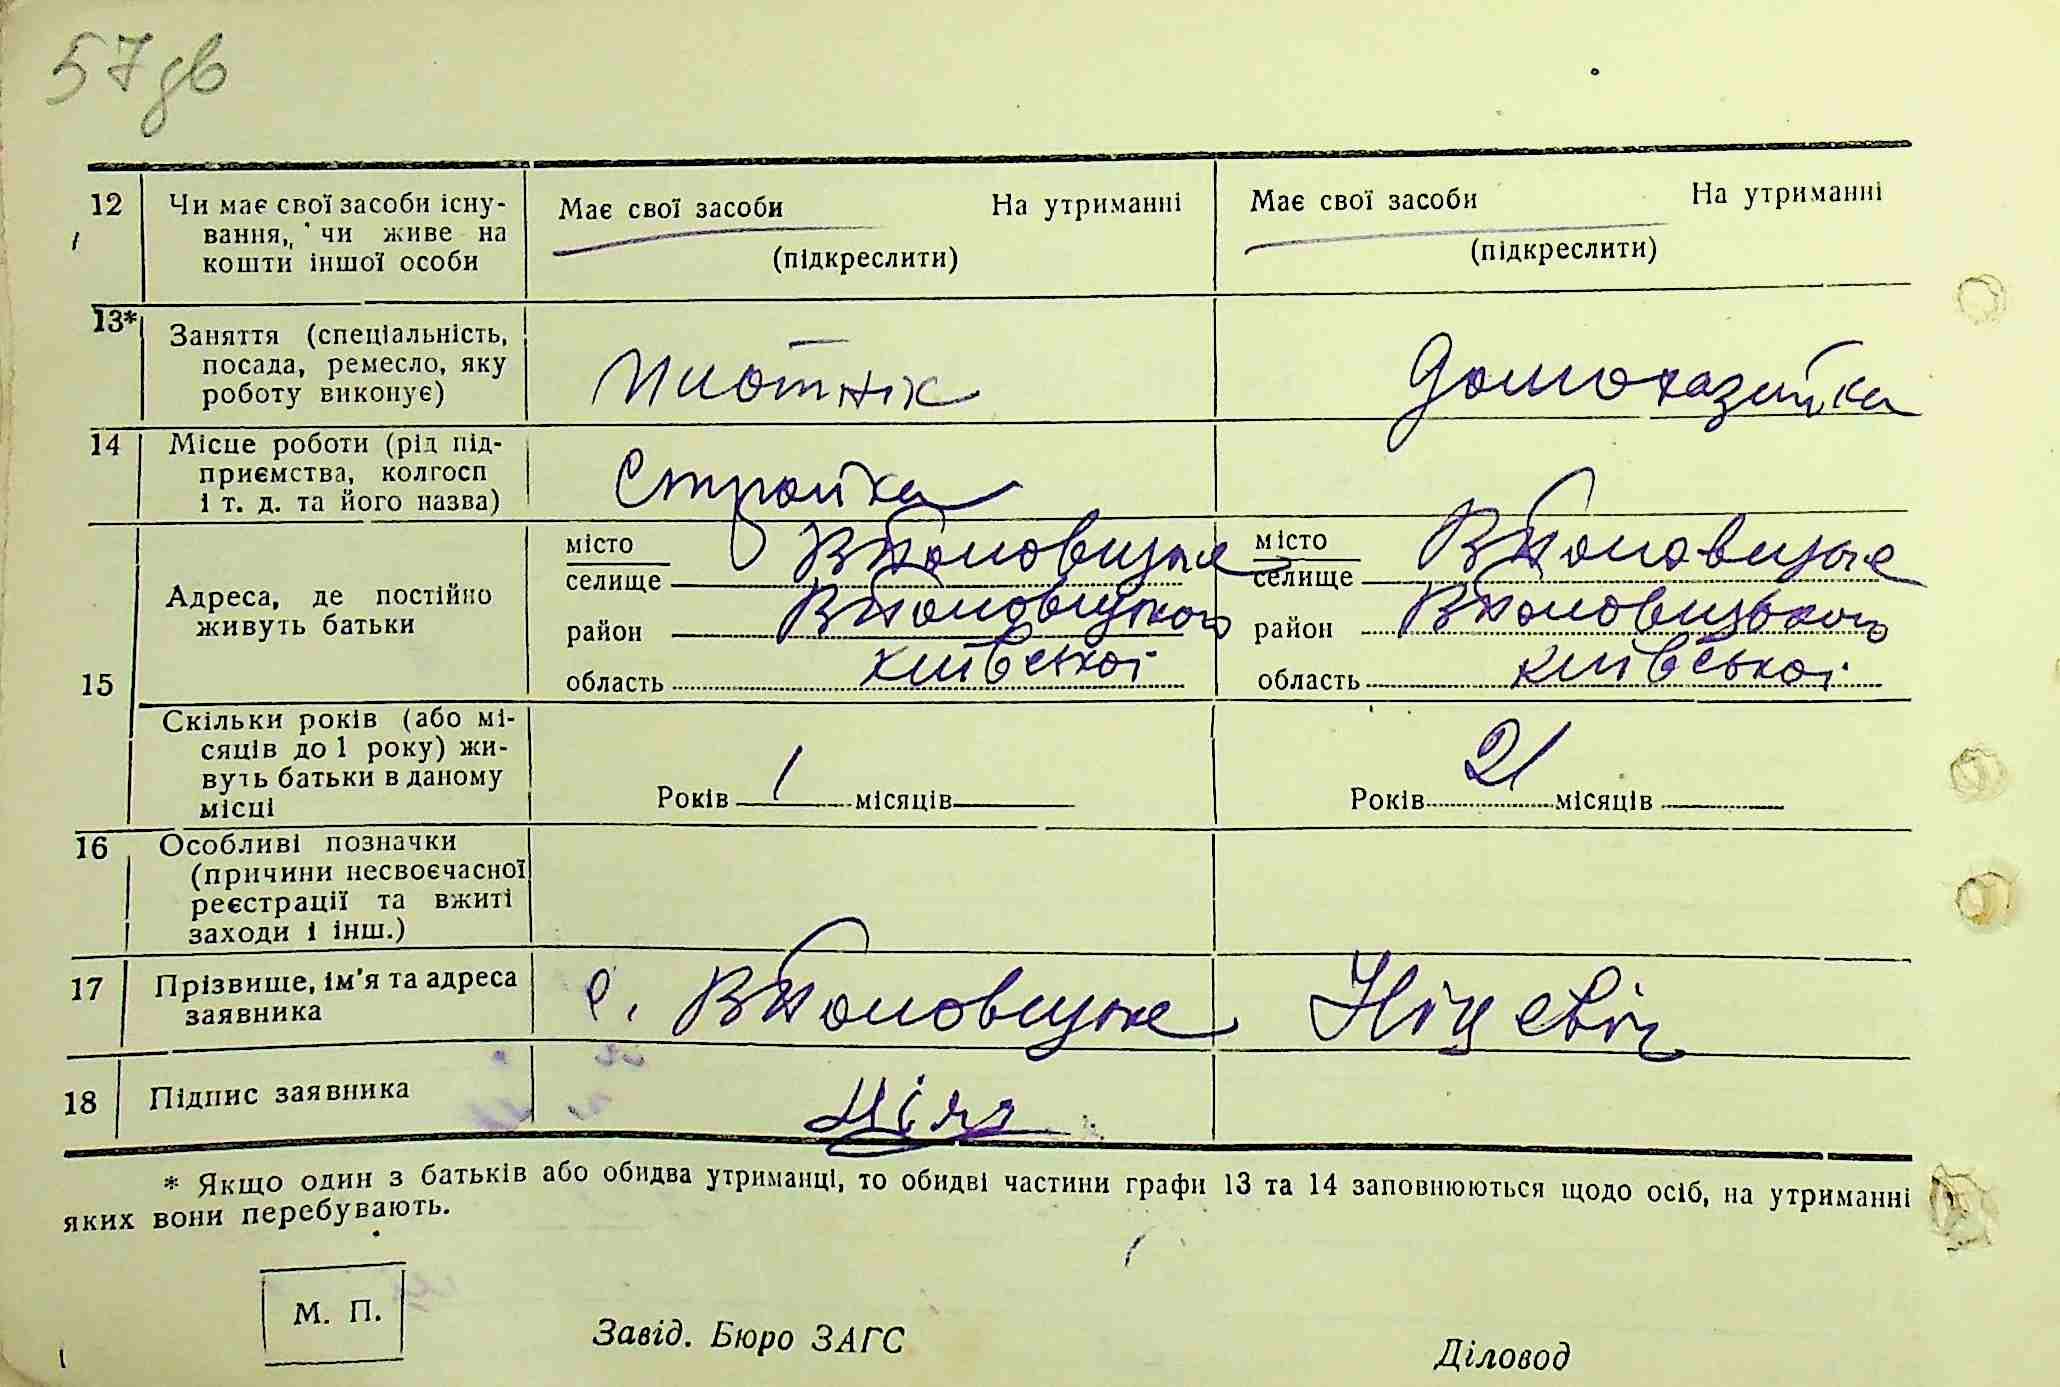 57 дв
12 Чи має свої засоби існу-
вання, чи живе на
кошти іншої особи
Має свої засоби На утриманні
(підкреслити)
Має свої засоби На утриманні
(підкреслити)
13* Заняття (спеціальність,
посада, ремесло, яку
роботу виконує)
плотнік
домохазяйка
14 Місце роботи (рід під-
приємства, колгосп
і т. д. та його назва)
Стройка
15 Адреса, де постійно
живуть батьки
місто
селище
район
область київської
місто
селище
район
область київської
Скільки років (або мі-
сяців до 1 року) жи-
вуть батьки в даному
місці
Років 1 місяців
Років 21 місяців
16 Особливі позначки
(причини несвоєчасної
реєстрації та вжиті
заходи і інш.)
17 Прізвище, ім'я та адреса
заявника
с. Ніцевіч
18 Підпис заявника
* Якщо один з батьків або обидва утриманці, то обидві частини графи 13 та 14 заповнюються щодо осіб, на утриманні
яких вони перебувають.
М. П.
Завід. Бюро ЗАГС
Діловод